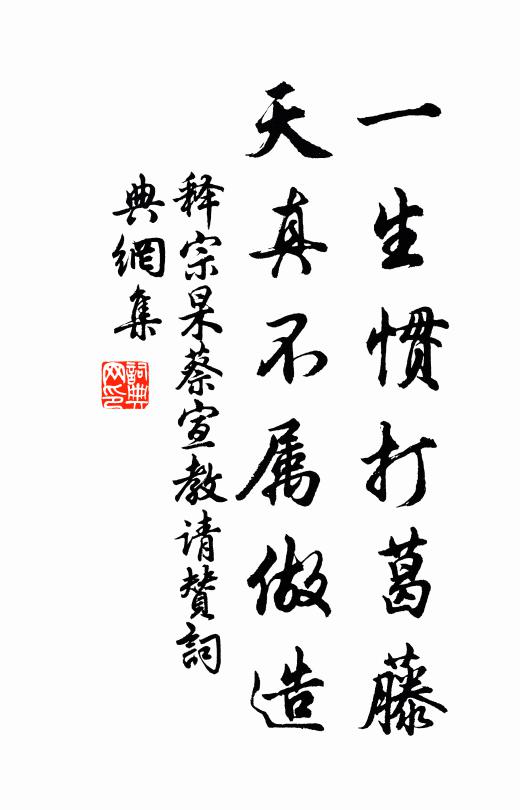 一生惯打葛藤
天真不属做造
释宗杲蔡宣教请赞詞
典網集
詞典网印